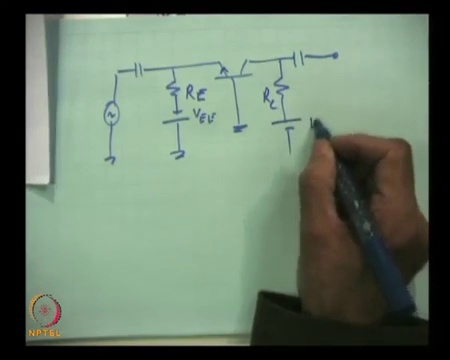 RE
VEE
RL
NPTEL